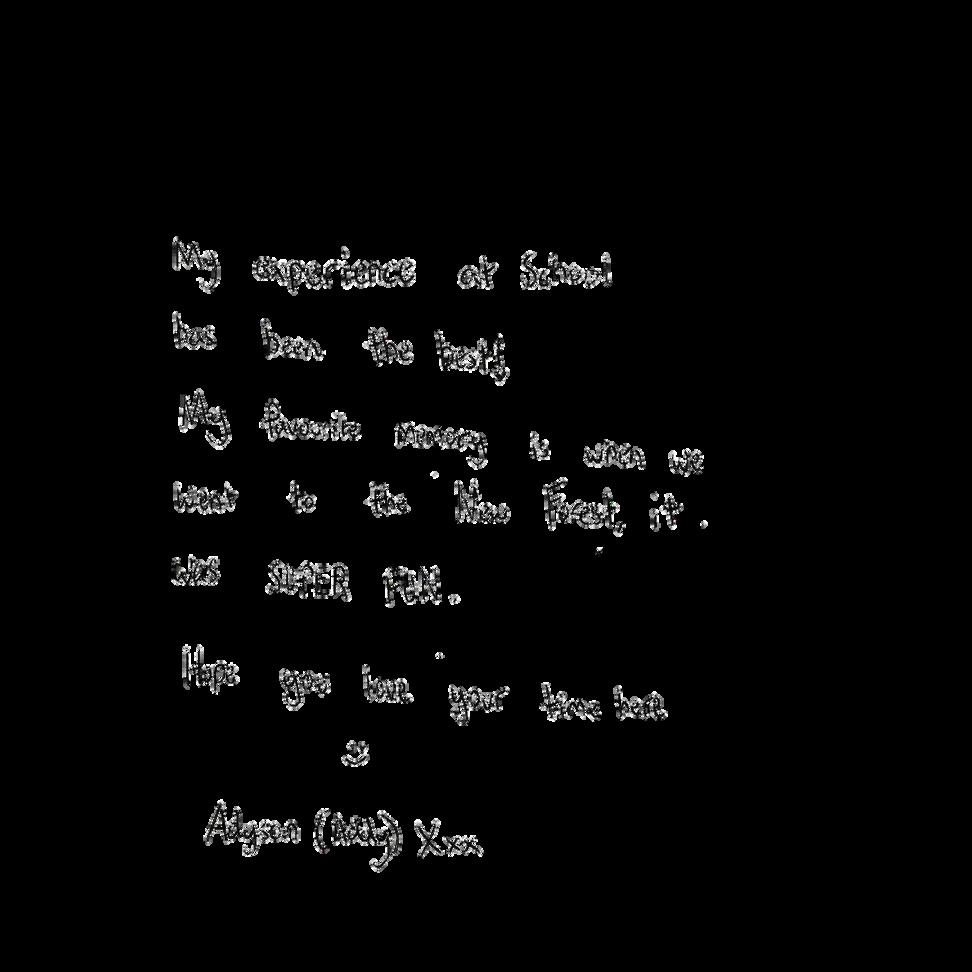 My experience at School
has been the best!
My favourite memory is when we
went to the New Forest, it
was SUPER FUN.
Hope you love your time here
Adyson (Addy) Xxx